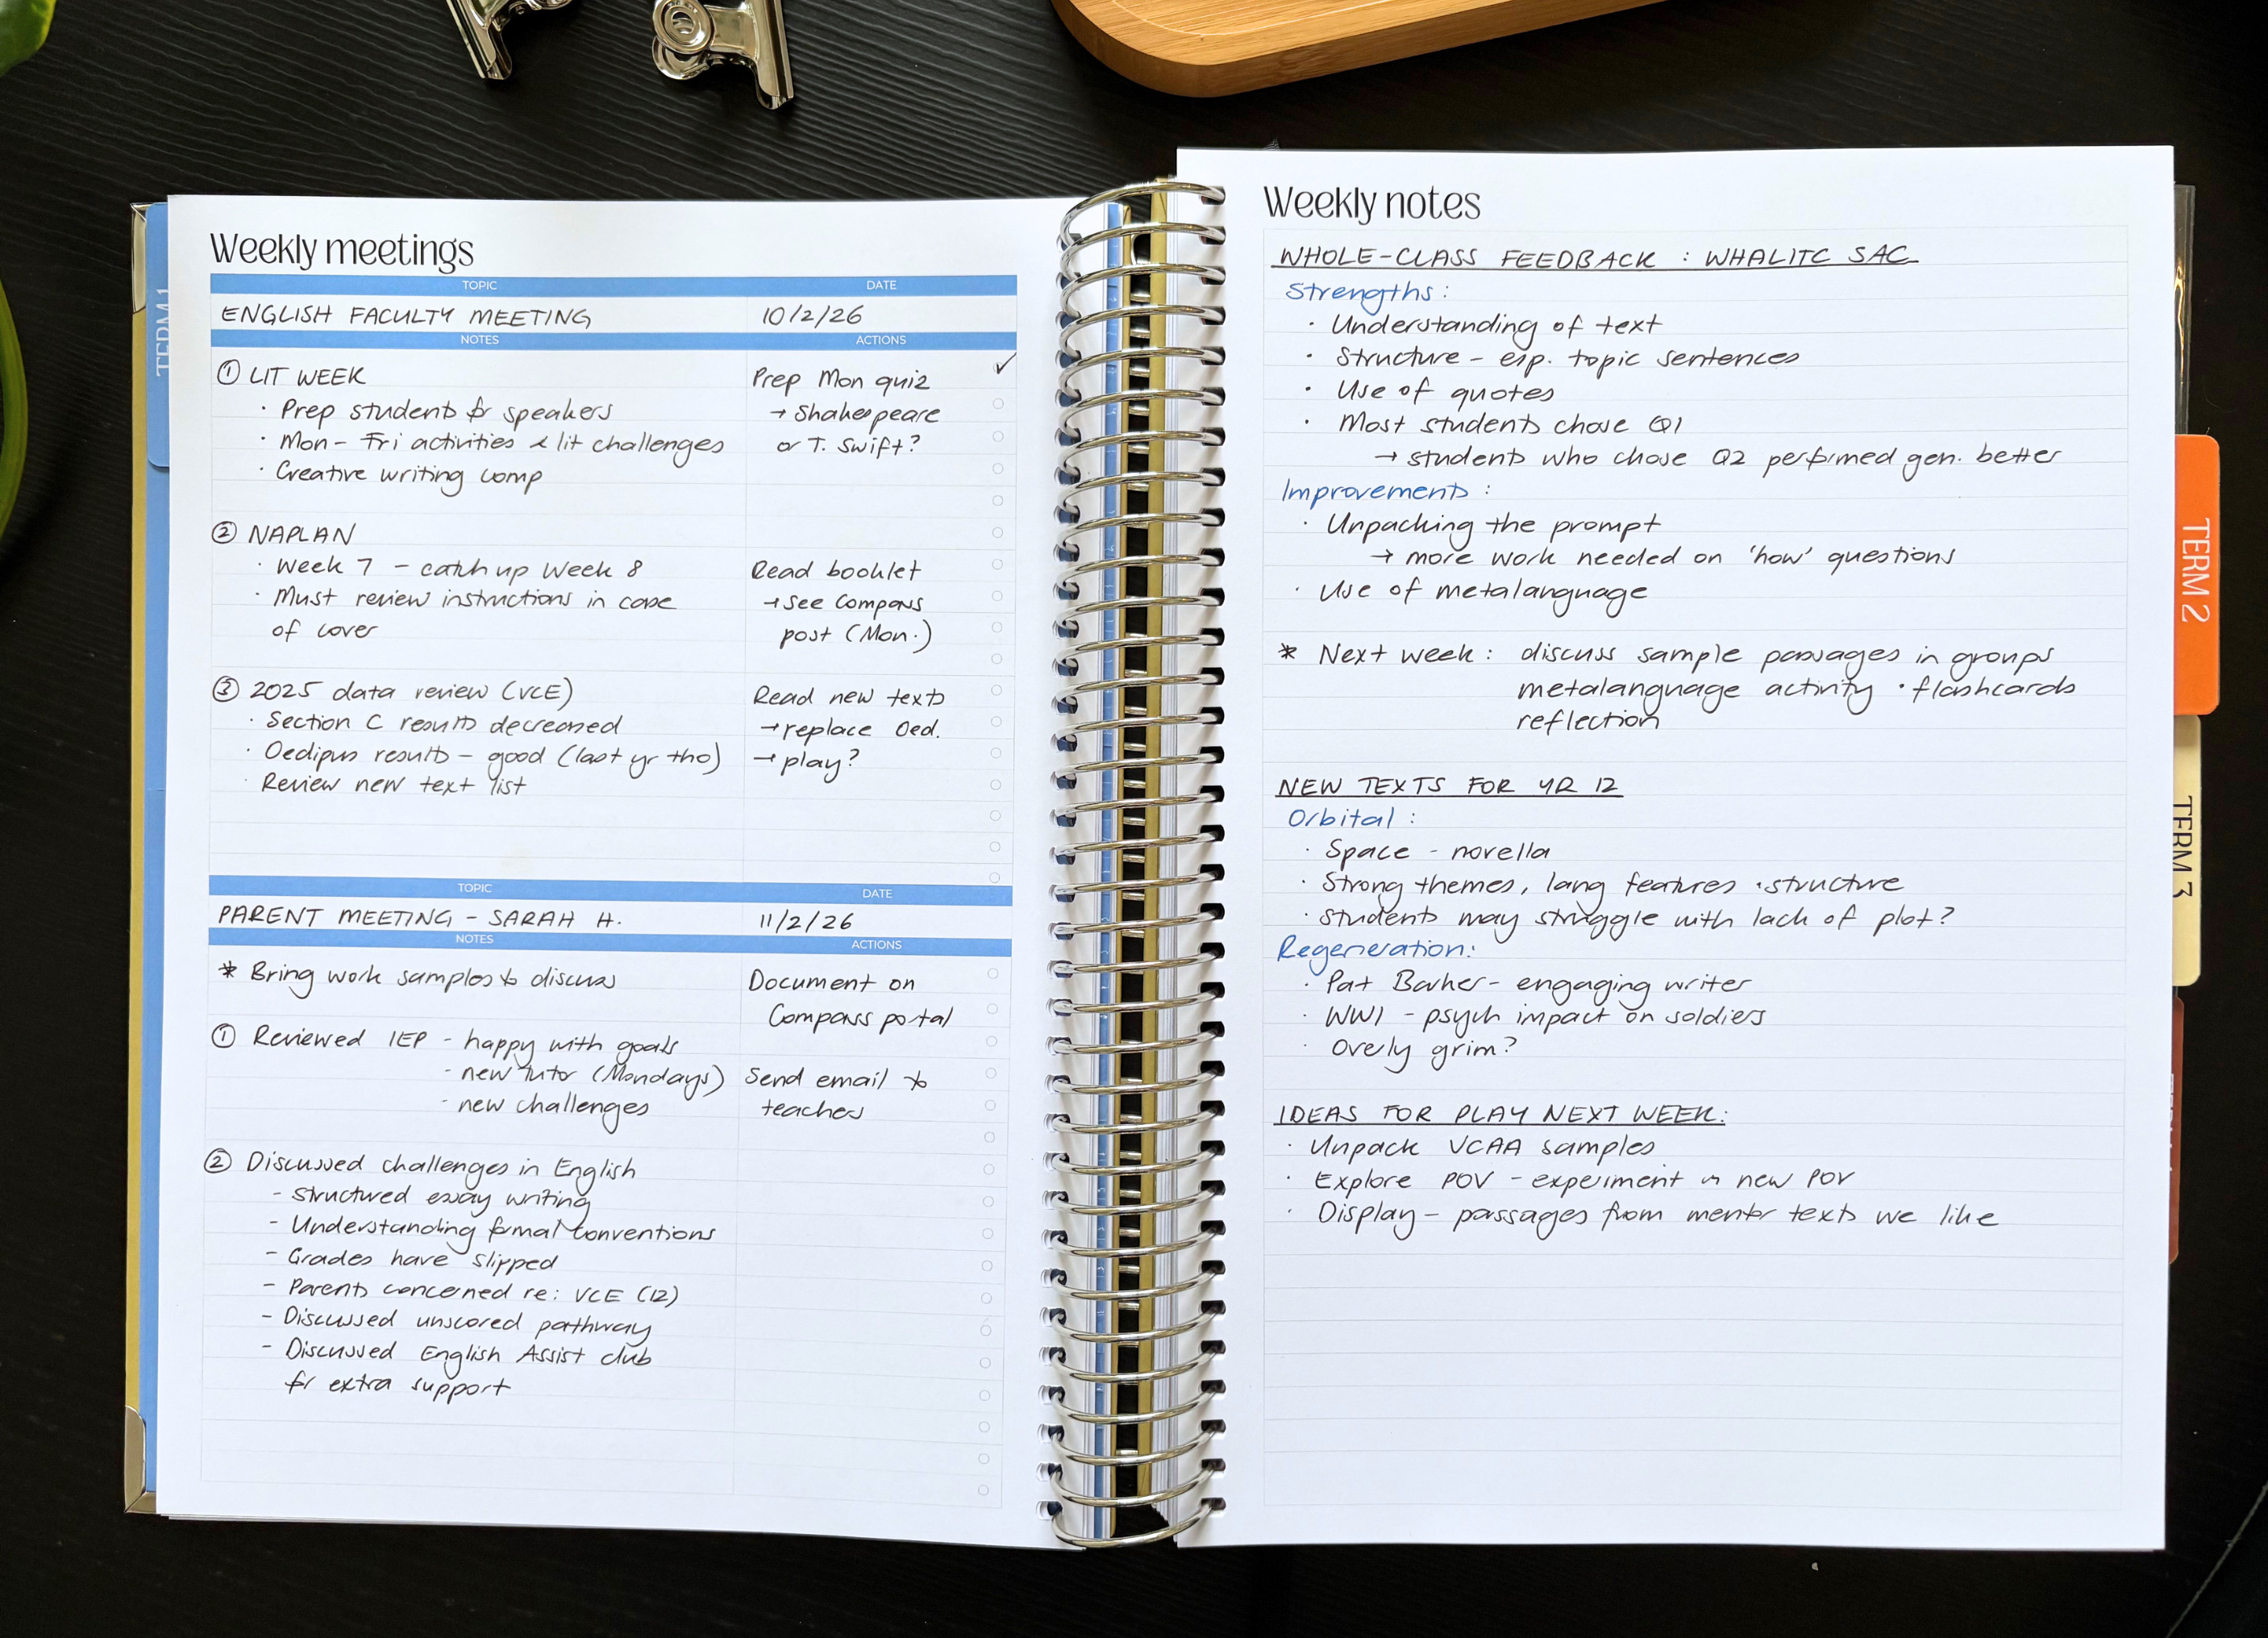 Weekly meetings
TOPIC DATE
ENGLISH FACULTY MEETING 10/2/26
NOTES ACTIONS
① LIT WEEK
· Prep students for speakers
· Mon - Fri activities & lit challenges
· Creative writing comp
Prep Mon quiz ✓
→ Shakespeare
or T. Swift?
② NAPLAN
· Week 7 - catch up Week 8
· Must review instructions in case
of cover
Read booklet
→ See Compass
post (Mon.)
③ 2025 data review (VCE)
· Section C results decreased
· Oedipus results - good (last yr tho)
· Review new text list
Read new texts
→ replace Oed.
→ play?
TOPIC DATE
PARENT MEETING - SARAH H. 11/2/26
NOTES ACTIONS
* Bring work samples to discuss
① Reviewed IEP - happy with goals
- new tutor (Mondays)
- new challenges
② Discussed challenges in English
- Structured essay writing
- Understanding formal conventions
- Grades have slipped
- Parents concerned re: VCE (12)
- Discussed unscored pathway
- Discussed English Assist club
for extra support
Document on
Compass portal
Send email to
teachers
TERM 1
Weekly notes
WHOLE-CLASS FEEDBACK : WHALITC SAC
Strengths :
· Understanding of text
· Structure - esp. topic sentences
· Use of quotes
· Most students chose Q1
→ students who chose Q2 performed gen. better
Improvements :
· Unpacking the prompt
→ more work needed on 'how' questions
· Use of metalanguage
* Next week : discuss sample passages in groups
metalanguage activity · flashcards
reflection
NEW TEXTS FOR YR 12
Orbital :
· Space - novella
· Strong themes, lang features · structure
· Students may struggle with lack of plot?
Regeneration:
· Pat Barker - engaging writer
· WW1 - psych impact on soldiers
· Overly grim?
IDEAS FOR PLAY NEXT WEEK:
· Unpack VCAA samples
· Explore POV - experiment in new POV
· Display - passages from mentor texts we like
TERM 2
TERM 3